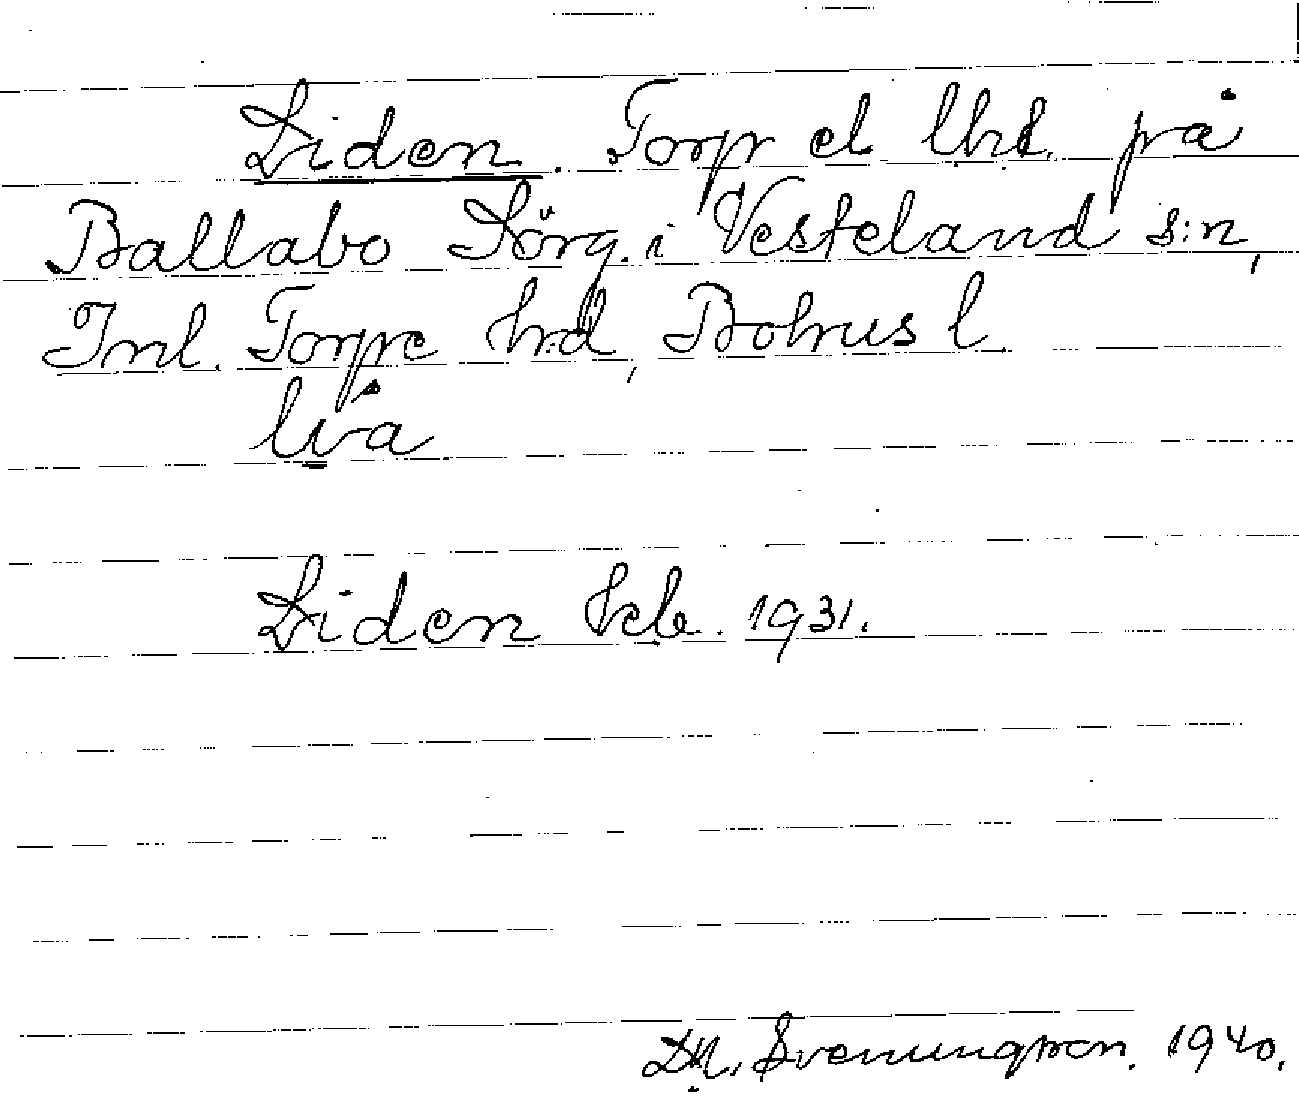 Liden. Torp el lht. på
Ballabo Sörg. i Vesteland s:n,
Inl. Torpe hrd, Bohus l
liƌa
Liden Jeb. 1931.
D.N. Svenungson. 1940.